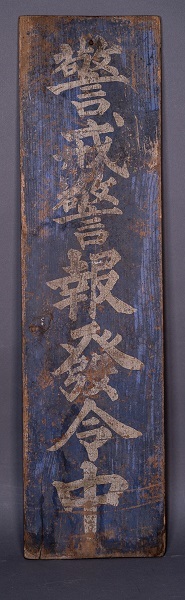 警戒警報發令中